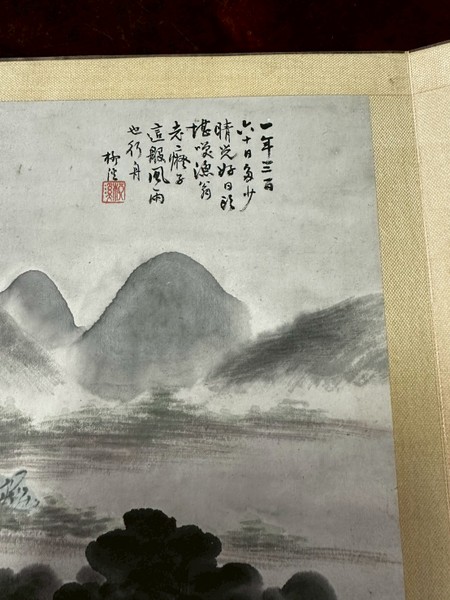 一年三百
六十日多少
晴光好日頭
堪咲漁翁
老癡子
這般風雨
也行舟